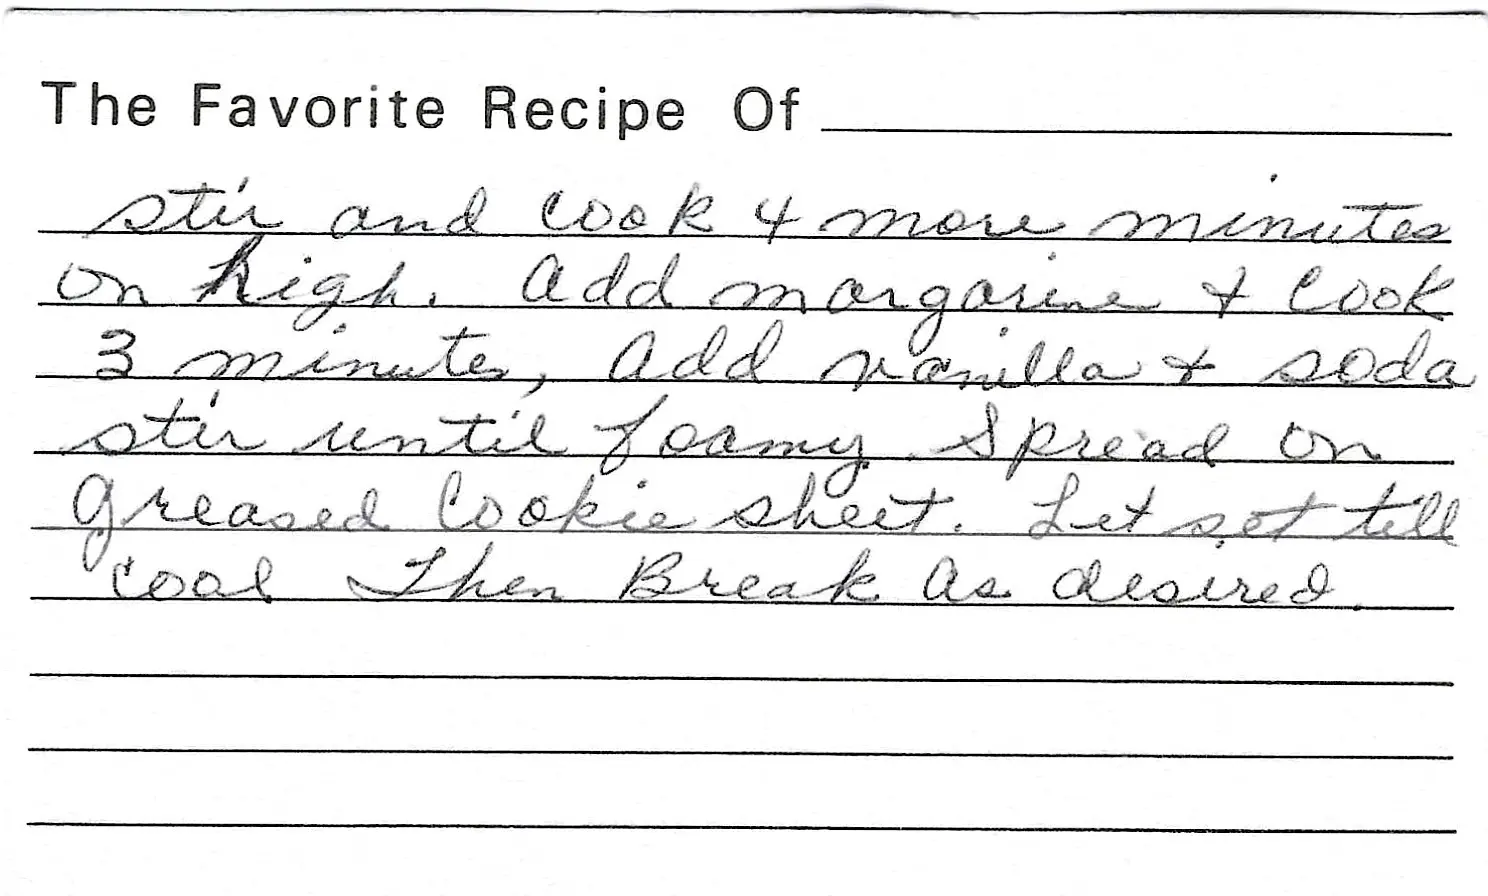 The Favorite Recipe Of
stir and cook 4 more minutes
on high. Add margarine & cook
3 minutes, Add vanilla & soda
stir until foamy. Spread on
greased Cookie sheet. Let set till
cool Then Break as desired.